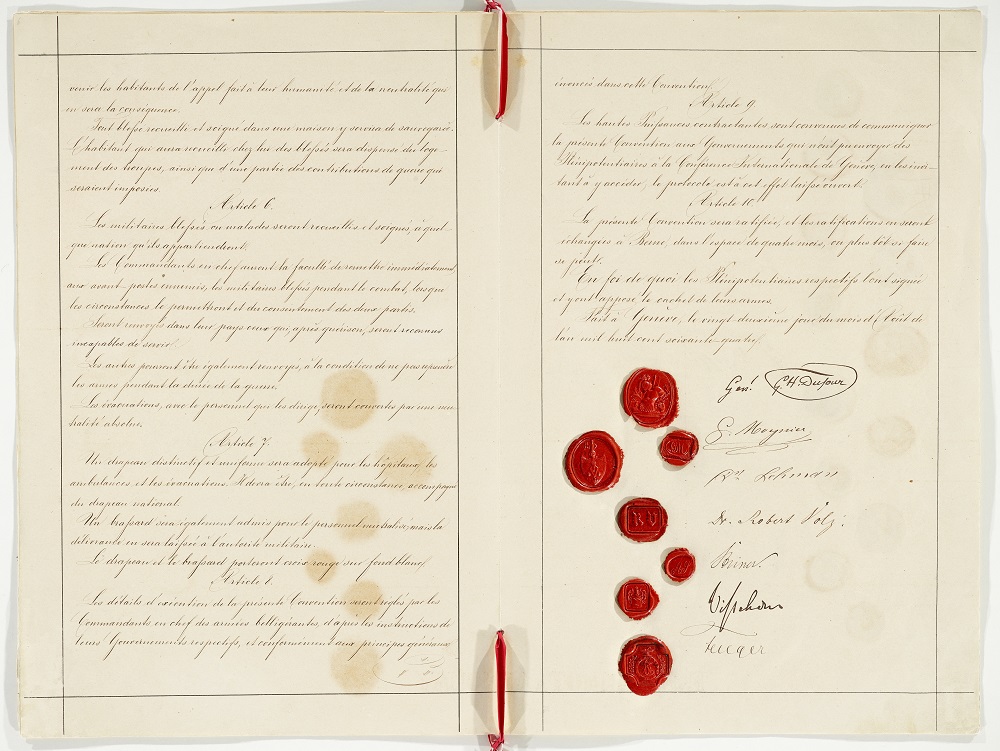 venir les habitants de l'appel fait à leur humanité et de la neutralité qui
en sera la conséquence.
Tout blessé recueilli et soigné dans une maison y servira de sauvegarde.
L'habitant qui aura recueilli chez lui des blessés sera dispensé du loge-
ment des troupes, ainsi que d'une partie des contributions de guerre qui
seraient imposées.
Article 6.
Les militaires blessés ou malades seront recueillis et soignés, à quel-
que nation qu'ils appartiendront.
Les Commandants en chef auront la faculté de remettre immédiatement
aux avant-postes ennemis, les militaires blessés pendant le combat, lorsque
les circonstances le permettront et du consentement des deux partis.
Seront renvoyés dans leur pays ceux qui, après guérison, seront reconnus
incapables de servir.
Les autres pourront être également renvoyés, à la condition de ne pas reprendre
les armes pendant la durée de la guerre.
Les évacuations, avec le personnel qui les dirige, seront couvertes par une neu-
tralité absolue.
Article 7.
Un drapeau distinctif et uniforme sera adopté pour les hôpitaux, les
ambulances et les évacuations. Il devra être, en toute circonstance, accompagné
du drapeau national.
Un brassard sera également admis pour le personnel neutralisé, mais la
délivrance en sera laissée à l'autorité militaire.
Le drapeau et le brassard porteront croix rouge sur fond blanc.
Article 8.
Les détails d'exécution de la présente Convention seront réglés par les
Commandants en chef des armées belligérantes, d'après les instructions de
leurs Gouvernements respectifs, et conformément aux principes généraux
énoncés dans cette Convention.
Article 9.
Les hautes Puissances contractantes sont convenues de communiquer
la présente Convention aux Gouvernements qui n'ont pu envoyer des
Plénipotentiaires à la Conférence Internationale de Genève, en les invi-
tant à y accéder; le protocole est à cet effet laissé ouvert.
Article 10.
La présente Convention sera ratifiée, et les ratifications en seront
échangées à Berne, dans l'espace de quatre mois, ou plus tôt si faire
se peut.
En foi de quoi les Plénipotentiaires respectifs l'ont signée
et y ont apposé le cachet de leurs armes.
Fait à Genève, le vingt deuxième jour du mois d'Août de
l'an mil huit cent soixante-quatre.
Gén. G. H. Dufour
G. Moynier
Dr. Lehmann
Dr. Robert Volz.
RV
Steiner.
Visschers